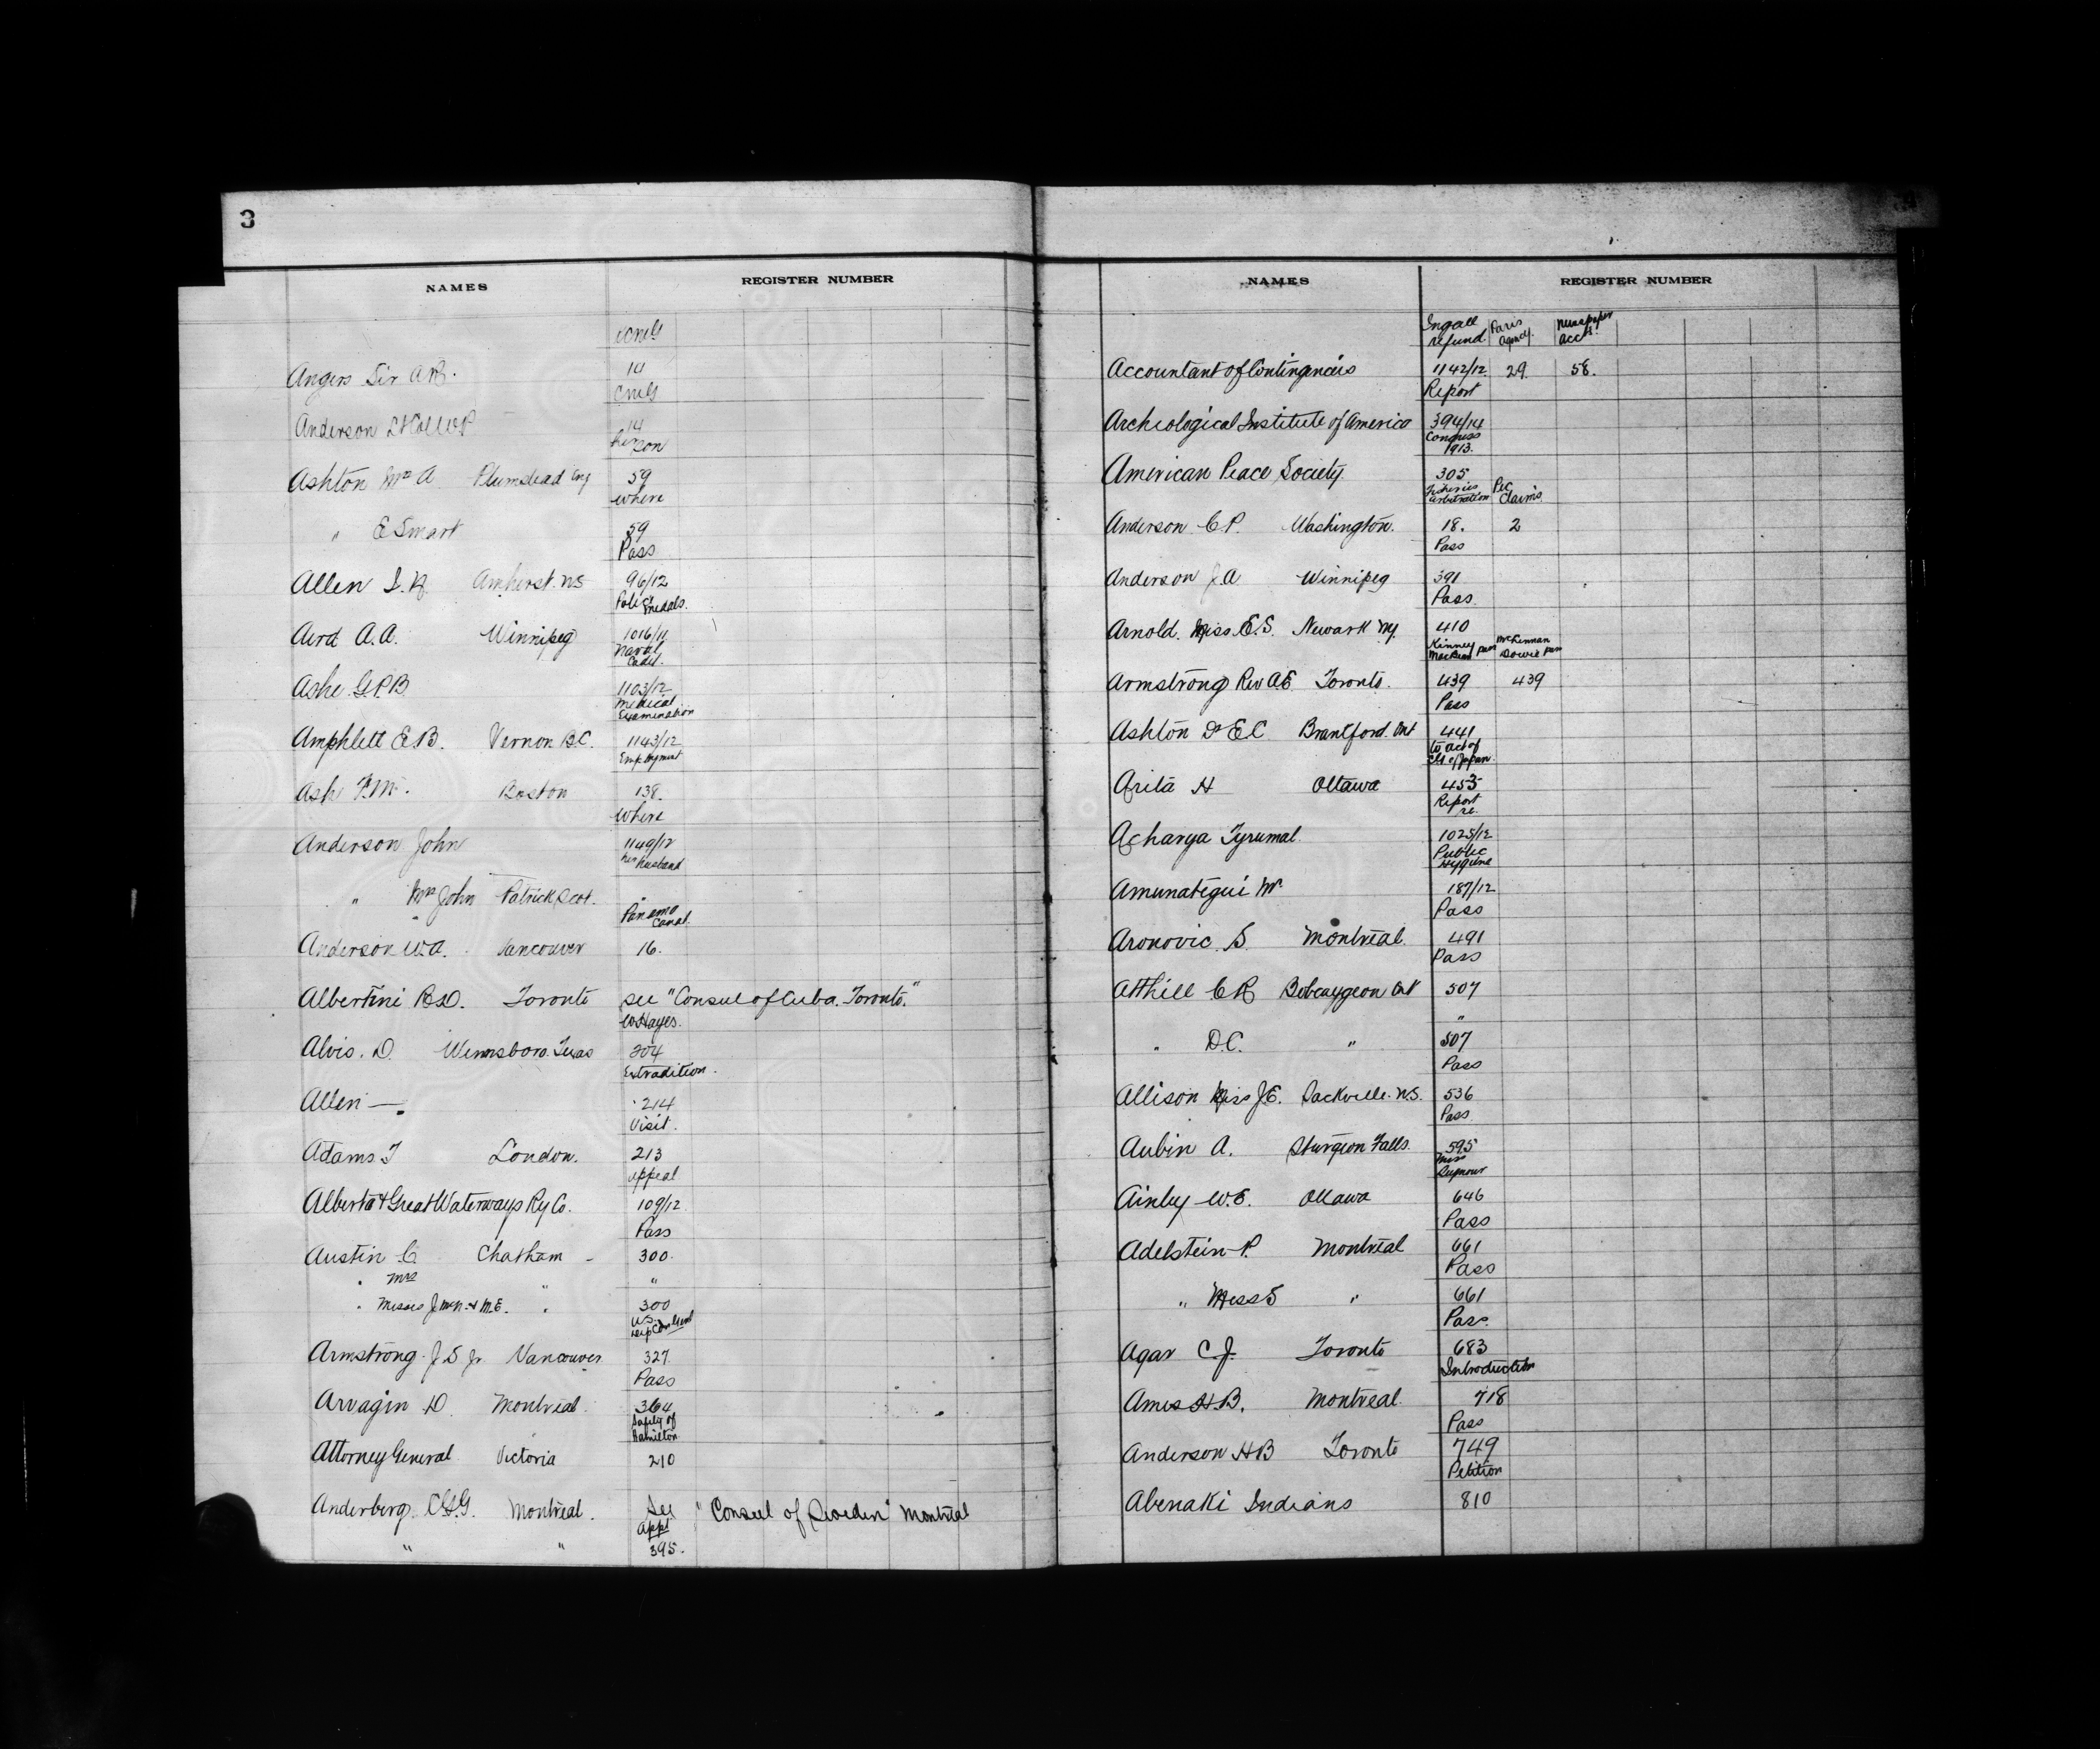 3
NAMES REGISTER NUMBER
CMG
Angers Sir A R. 14
CMG
Anderson Lt Col W P 14
her son
Ashton Mrs A Plumstead Eng 59
where
" E Smart 59
Pass
Allen Amherst. NS 96/12
Police Medals.
Aird A.A. Winnipeg 1016/11
Naval Cadet.
Ashe G.P.B. 1103/12
Medical Examination
Amphlett E.B. Vernon B.C. 1143/12
Employment
Ash Boston 138.
where
Anderson John 1149/12
her husband
" Mrs John Patrick Scot. "
Panama Canal.
Anderson W.A. Vancouver 16.
Albertini Toronto see "Consul of Cuba. Toronto."
W Hayes.
Alvis. D. Winnsboro. Texas 204
Extradition.
Allen —. 214
Visit.
Adams J London. 213
appeal
Alberta & Great Waterways Ry Co. 109/12
Pass
Austin C. Chatham - 300.
" Mrs "
" Misses J. McN. & M.E. " 300
U.S. Dep Con Genl
Armstrong J S Jr Vancouver 327.
Pass
Arvagin D. Montreal 364
Safety of Hamilton
Attorney General Victoria 210
Anderberg. Montreal. See "Consul of Sweden" Montreal
appt
" " 395.
NAMES REGISTER NUMBER
Ingall refund. Paris Agency. Newspaper acct.
Accountant of Contingencies 1142/12 29. 58.
Report
Archeological Institute of America 394/14
Congress 1913.
American Peace Society. 305
Fisheries arbitration Pec. Claims.
Anderson C.P. Washington. 18. 2
Pass
Anderson J.A. Winnipeg 391
Pass.
Arnold. Miss E.S. Newark NJ 410
Kinney MacBean pass McKinnan Dowie pass
Armstrong Rev A.E. Toronto. 439 439
Pass
Ashton Dr E C Brantford. Ont 441
to act of CG of Japan.
Arita H Ottawa 453
Report re.
Acharya Tyrumal. 1025/12
Public Hygiene
Amunategui Mr 187/12
Pass
Aronovic. S. Montreal. 491
Pass
Atthill C R Bobcaygeon Ont 507
"
" D.C. " 507
Pass
Allison Miss J.E. Sackville. N.S. 536
Pass.
Aubin A. Sturgeon Falls. 595
Miss Seymour
Ainley W.E. Ottawa 646
Pass
Adelstein P. Montreal 661
Pass
" Miss S " 661
Pass.
Agar C.J. Toronto 683
Introduction
Ames H B. Montreal. 718
Pass
Anderson H B Toronto 749
Petition
Abenaki Indians 810